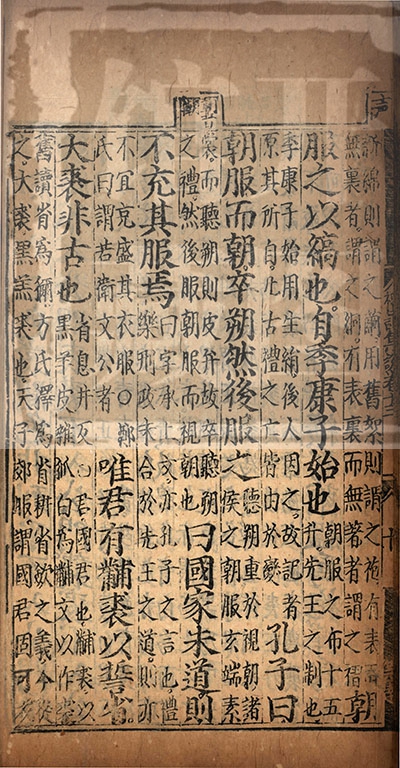 新綿則謂之繭用舊絮則謂之袍有表而無裏者謂之絅有表裏而無著者謂之褶朝
服之以縞也自季康子始也朝服之布十五升先王之制也
季康子始用生絹後人因之故記者原其所自凡古禮之亡皆由於變孔子曰
朝服而朝卒朔然後服之聽朔重於視朝諸侯之朝服玄端素
裳而聽朔則皮弁故卒聽朔之禮然後服朝服而視朝也曰國家未道則
不充其服焉曰字承上文亦孔子之言也禮樂刑政未合於先王之道則亦
不宜充盛其衣服○鄭氏曰謂若衛文公者唯君有黼裘以誓省
大裘非古也省息井反○君國君也黼裘以黑羊皮雜狐白為黼文以作裘
舊讀省為獮方氏釋為省耕省斂之義今從之大裘黑羔裘也天子郊服謂國君固可